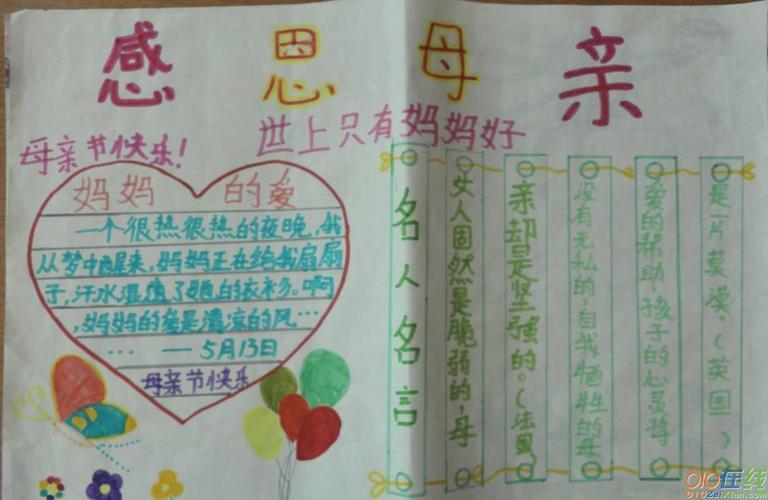 感恩母亲
世上只有妈妈好
母亲节快乐!
妈妈 的爱
一个很热很热的夜晚,我
从梦中醒来,妈妈正在给我扇扇
子,汗水湿透了她的衣衫。啊
,妈妈的爱是清凉的风…
… — 5月13日
母亲节快乐
名人名言
女人固然是脆弱的,母
亲却是坚强的。(法国)
没有无私的,自我牺牲的母
爱的帮助,孩子的心灵将
是一片荒漠。(英国)
010在线
010ZaiXian.com